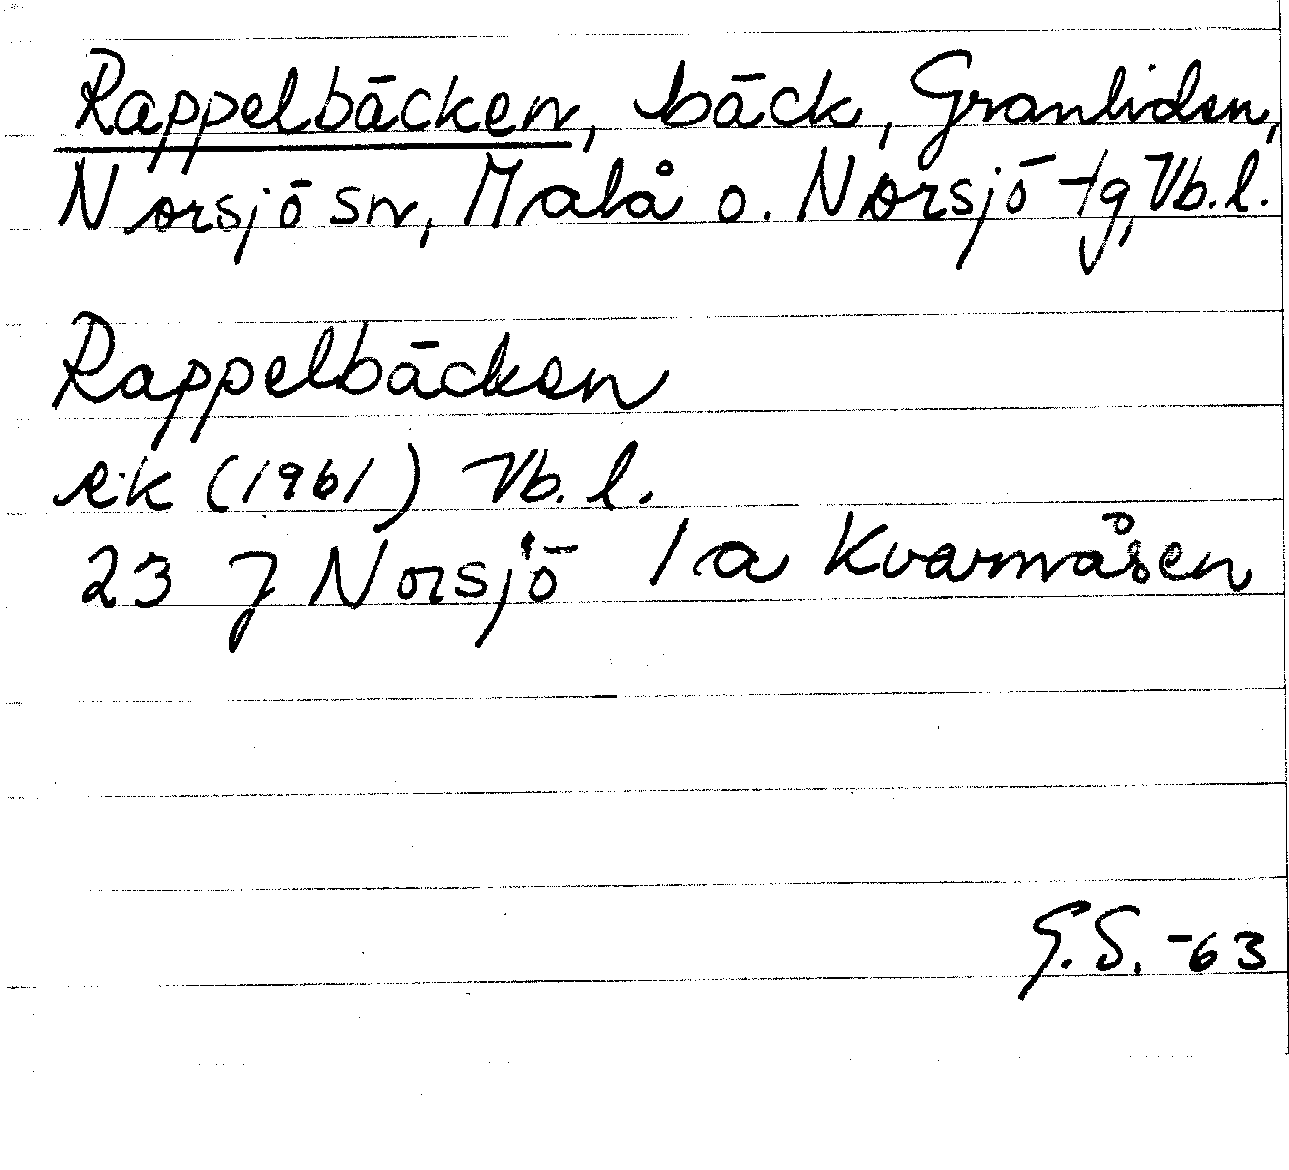 Rappelbäcken, bäck, Granliden,
Norsjö sn, Malå o. Norsjö tg, Vb.l.
Rappelbäcken
ek (1961) Vb. l.
23 J Norsjö 1a Kvarnåsen
G.S. -63